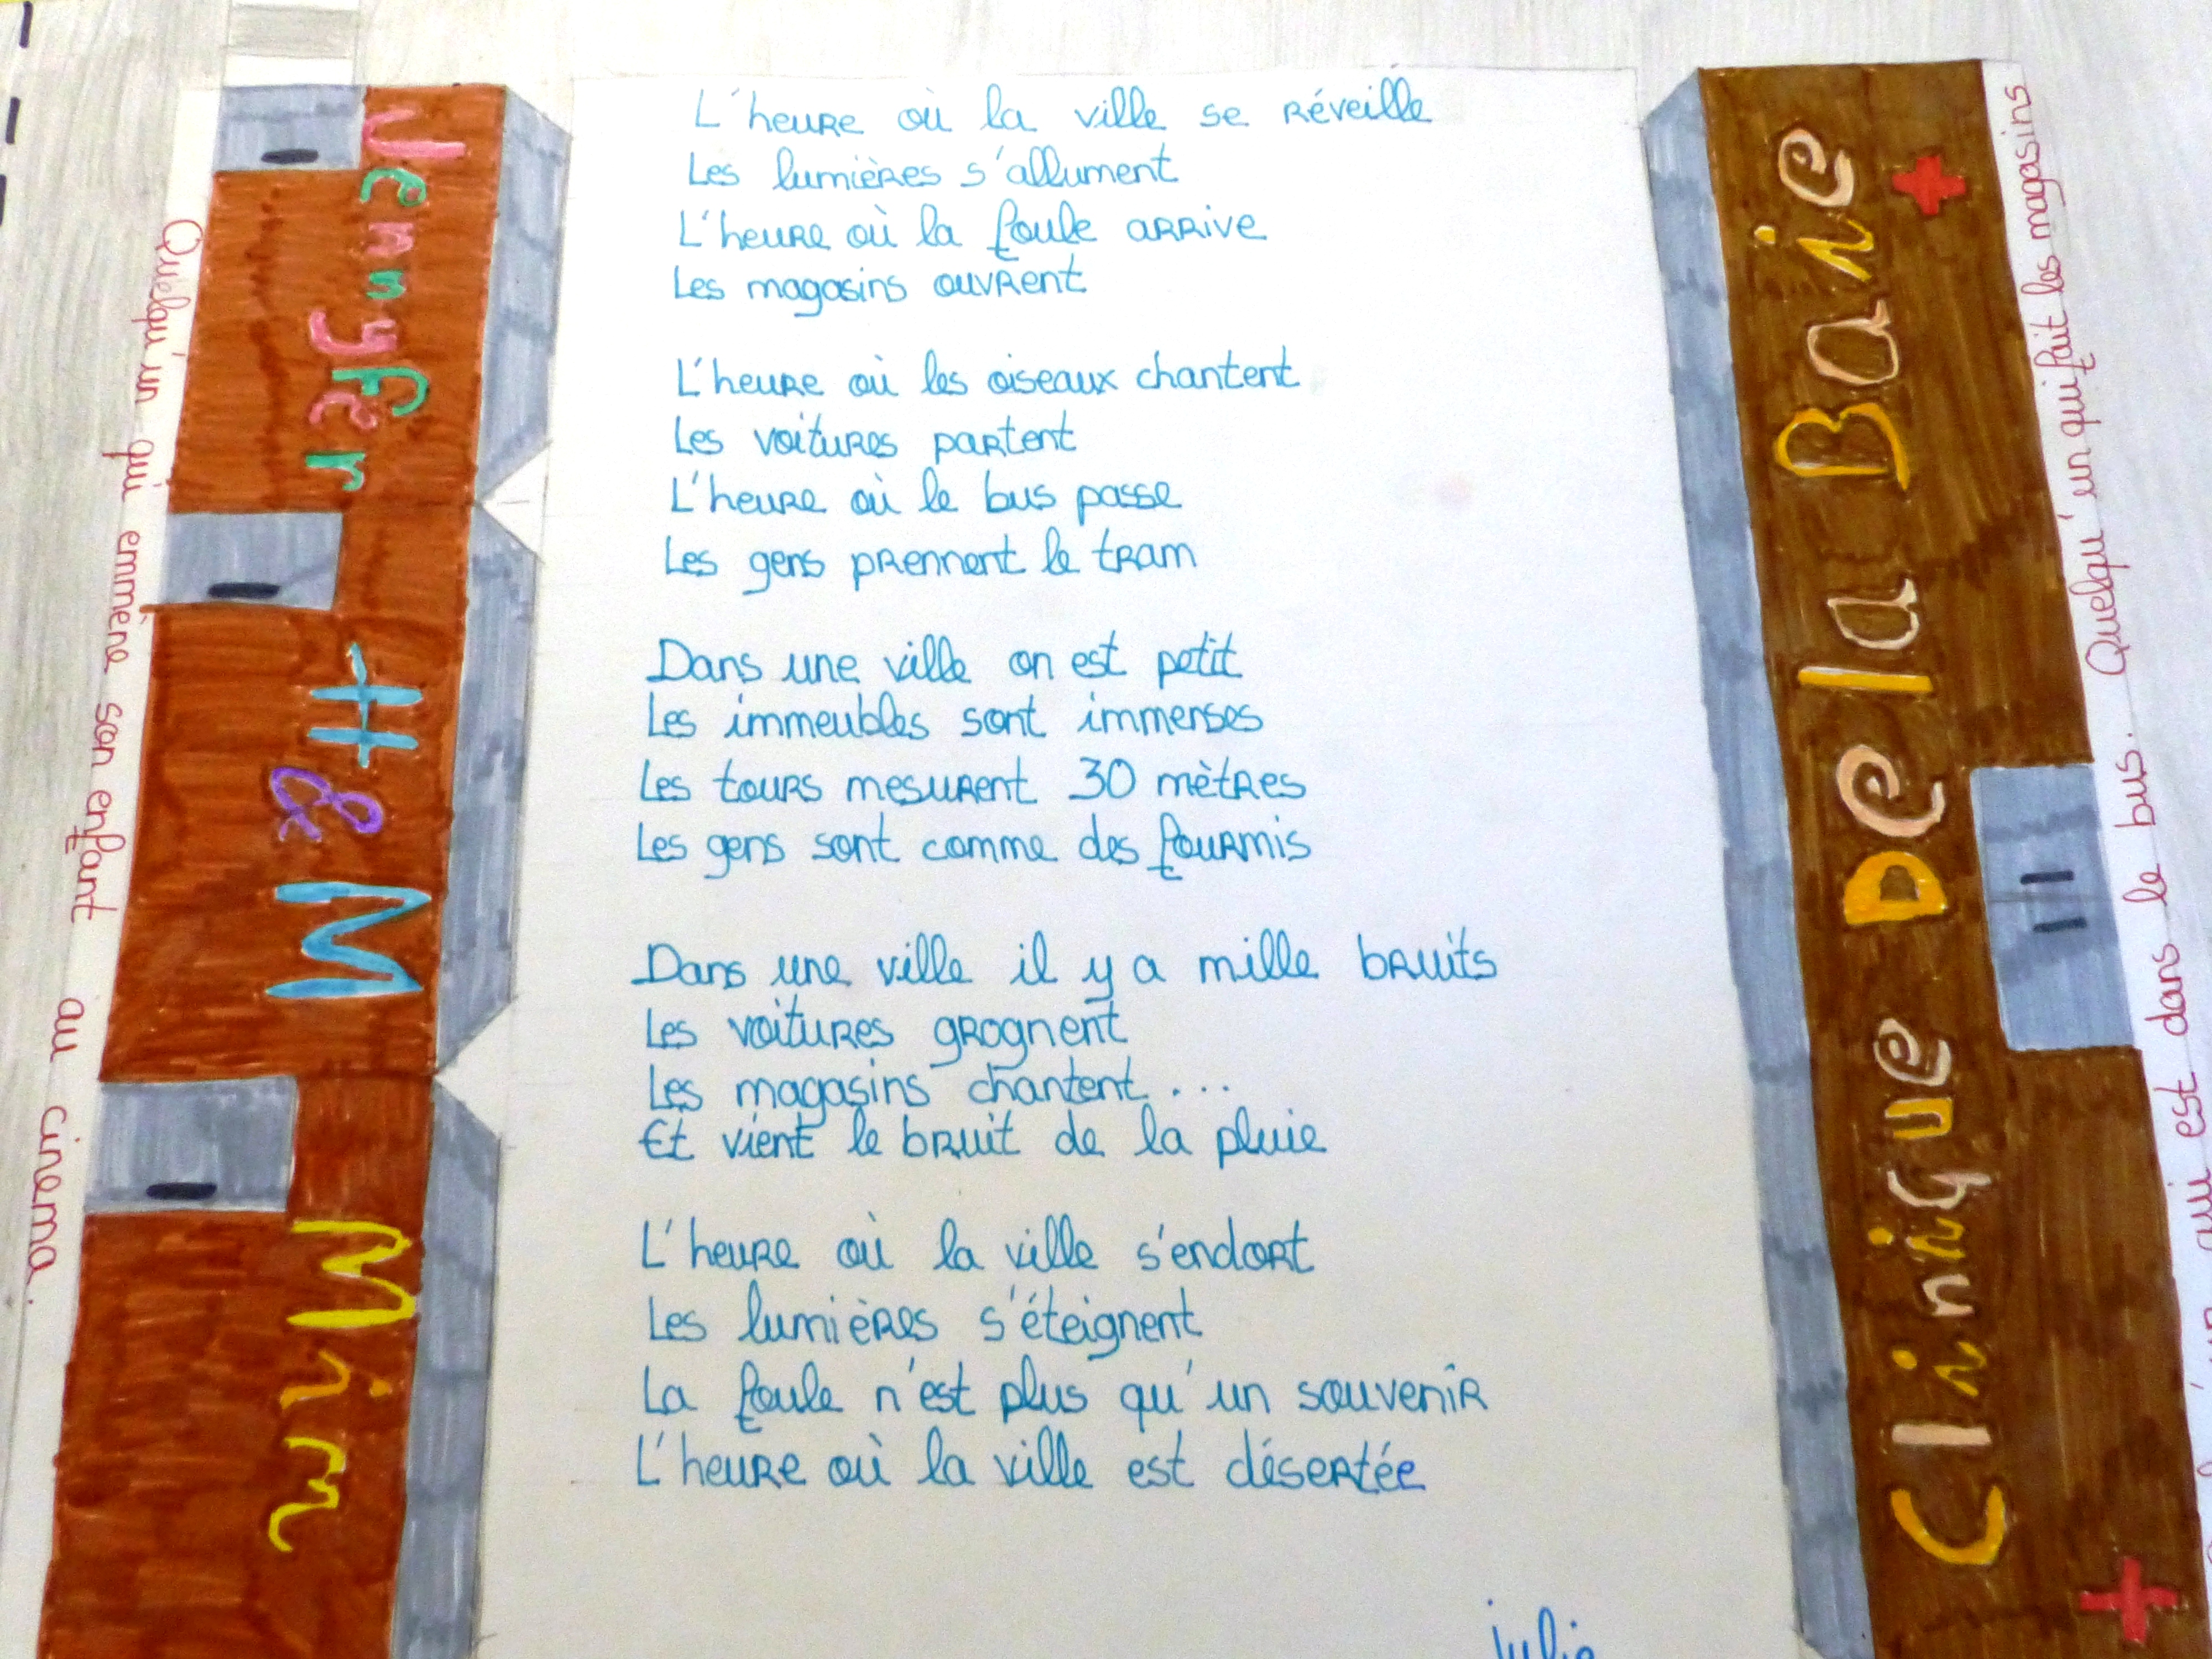 L'heure où la ville se réveille
Les lumières s'allument
L'heure où la foule arrive
Les magasins ouvrent
L'heure où les oiseaux chantent
Les voitures partent
L'heure où le bus passe
Les gens prennent le tram
Dans une ville on est petit
Les immeubles sont immenses
Les tours mesurent 30 mètres
Les gens sont comme des fourmis
Dans une ville il y a mille bruits
Les voitures grognent
Les magasins chantent...
Et vient le bruit de la pluie
L'heure où la ville s'endort
Les lumières s'éteignent
La foule n'est plus qu'un souvenir
L'heure où la ville est désertée
julie
Jennyfer H&M Mim
Quelqu'un qui emmène son enfant au cinema.
Clinique De la Baie
Quelqu'un qui fait les magasins
qui est dans le bus.